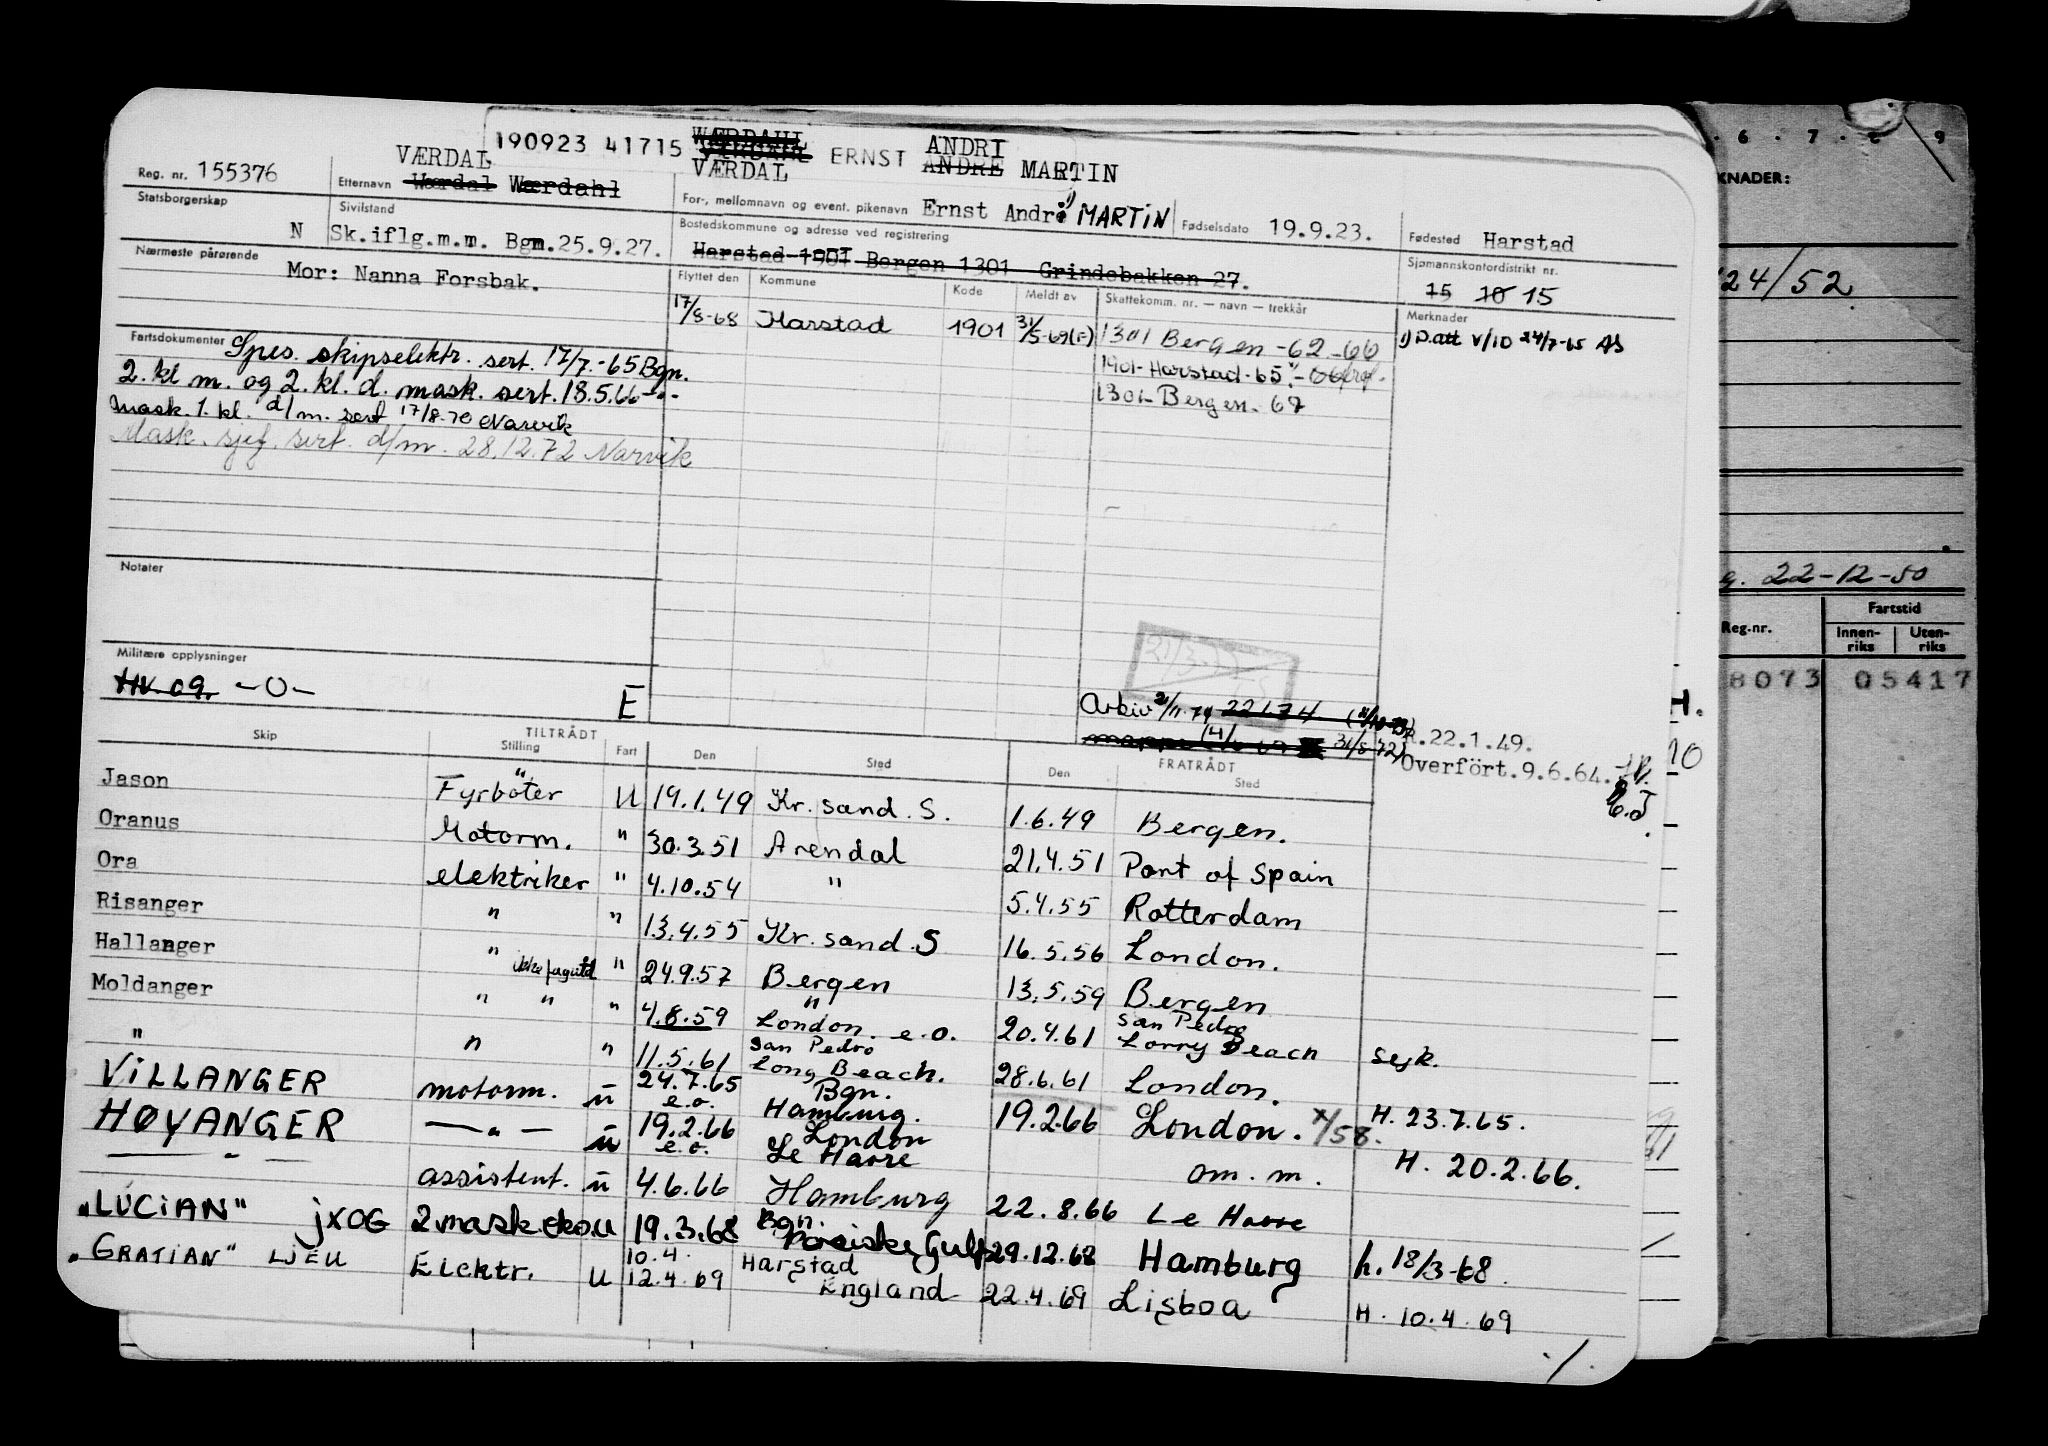 190923 41715 WÆRDAHL ERNST ANDRI
VÆRDAL ANDRE MARTIN
VÆRDAL
Reg. nr. 155376 Etternavn Wærdal Wærdahl For-, mellomnavn og event. pikenavn Ernst André 1) MARTIN Fødselsdato 19.9.23. Fødested Harstad
Statsborgerskap N Sivilstand Sk.iflg.m.m. Bgm.25.9.27. Bostedskommune og adresse ved registrering Harstad 1901 Bergen 1301 Grindebakken 27. Sjømannskontordistrikt nr. 15 10 15
Nærmeste pårørende Mor: Nanna Forsbak.
Flyttet den Kommune Kode Meldt av Skattekomm. nr. — navn — trekkår Merknader
17/8-68 Harstad 1901 31/5-69(F) 1301 Bergen -62-66 1) D.att v/10 24/7-65 AS
1901- Harstad-65
1301- Bergen- 67
Fartsdokumenter Spes. skipselektr. sert. 17/7.-65 Bgn.
2. kl m. og 2. kl. d. mask. sert. 18.5.66 -"-
Mask. 1. kl. d/m. sert 17/8-70 Narvik
Mask. sjef. sert. d/m. 28.12.72 Narvik
Notater
Militære opplysninger
HV. 09. -O- E
Arkiv 2/11.74 22174
31/8 72)
.22.1.49.
Overført.9.6.64.
Skip TILTRÅDT FRATRÅDT
Stilling Fart Den Sted Den Sted
Jason Fyrbøter U 19.1.49 Kr. sand. S. 1.6.49 Bergen.
Oranus Motorm. " 30.3.51 Arendal 21.4.51 Port of Spain
Ora elektriker " 4.10.54 " 5.4.55 Rotterdam
Risanger " " 13.4.55 Kr. sand. S 16.5.56 London.
Hallanger " ikke fagutd " 24.9.57 Bergen 13.5.59 Bergen
Moldanger " " " 4.8.59 " London. e.o. 20.4.61 San Pedro Lorry Beach sejk.
" " " 11.5.61 San Pedro Long Beach. 28.6.61 London.
VILLANGER motorm. u 24.7.65 e.o. Bgn. Hamburg. 19.2.66 London. x/58. H. 23.7.65.
HØYANGER —"— u 19.2.66 e.o. London Le Havre om. m. H. 20.2.66.
— " — assistent. u 4.6.66 Hamburg 22.8.66 Le Havre
"LUCIAN" JXOG 2 mask eko. u 19.3.68 Bgn. Persiske Gulf 29.12.68 Hamburg h. 18/3-68.
"GRATIAN" LJEU Elektr. U 10.4. 12.4.69 Harstad England 22.4.69 Lisboa H. 10.4.69
./.
6 . 7 . 8 . 9
KNADER:
24/52
22-12-50
Reg.-nr. Fartstid
Innen-riks Uten-riks
8073 05417
H.
10